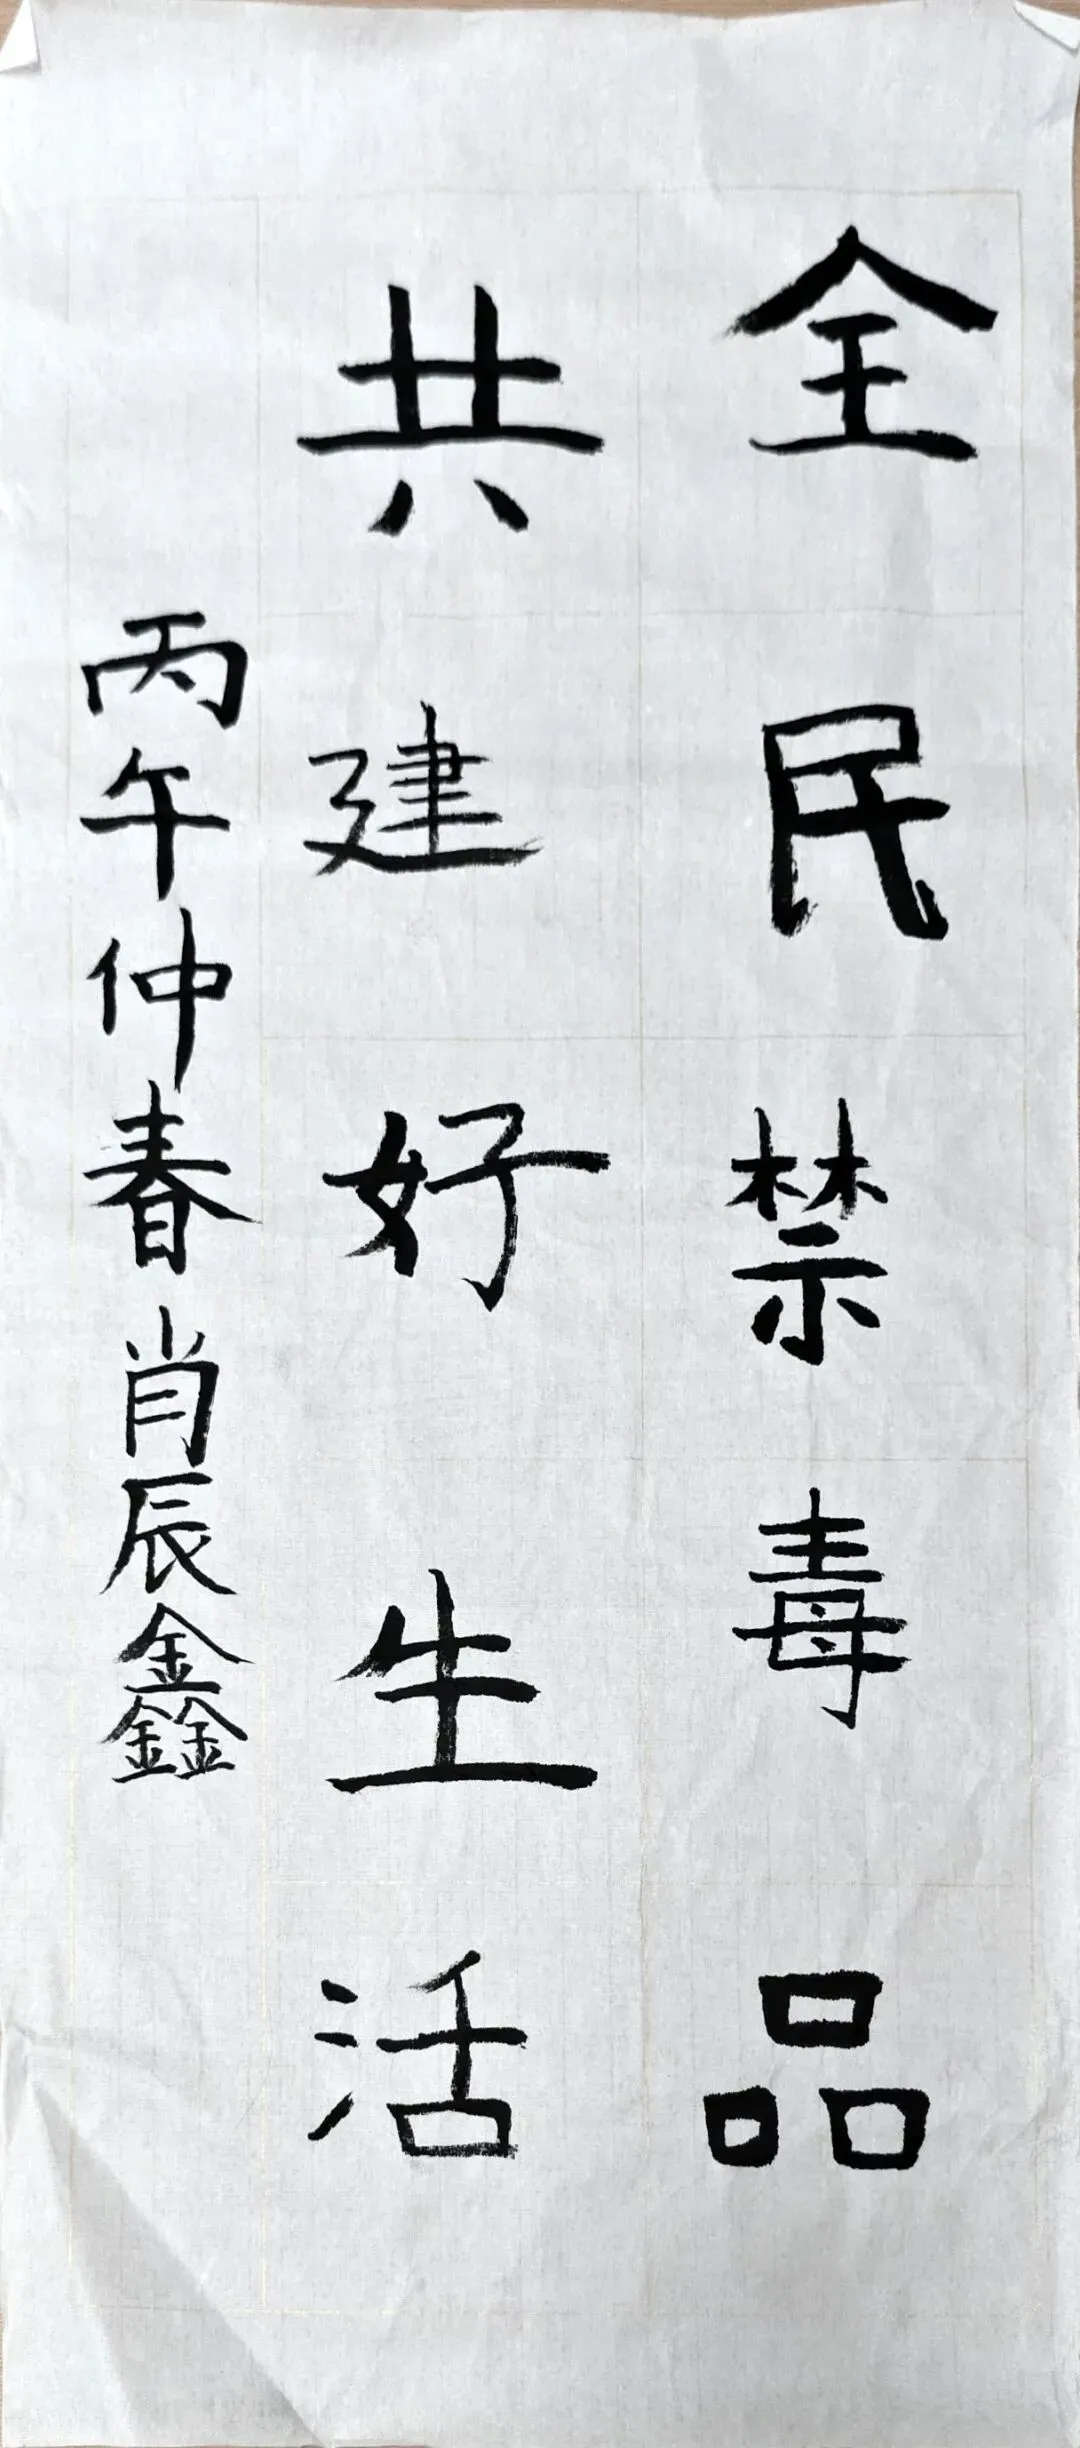 全民禁毒品
共建好生活
丙午仲春肖辰鑫